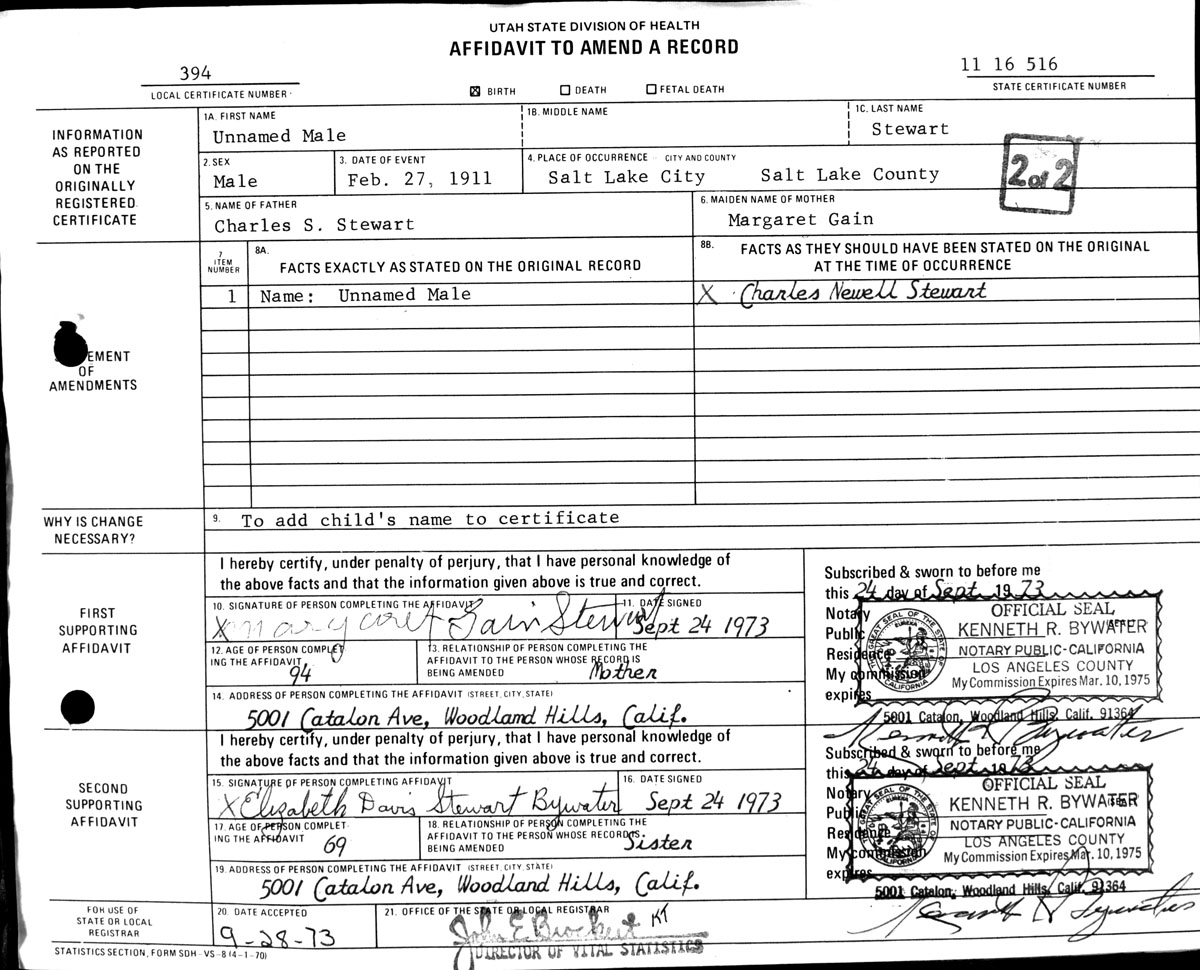 UTAH STATE DIVISION OF HEALTH
AFFIDAVIT TO AMEND A RECORD
394
LOCAL CERTIFICATE NUMBER
☒ BIRTH ☐ DEATH ☐ FETAL DEATH
11 16 516
STATE CERTIFICATE NUMBER
INFORMATION
AS REPORTED
ON THE
ORIGINALLY
REGISTERED
CERTIFICATE
1A. FIRST NAME
Unnamed Male
1B. MIDDLE NAME
1C. LAST NAME
Stewart
2. SEX
Male
3. DATE OF EVENT
Feb. 27, 1911
4. PLACE OF OCCURRENCE - CITY AND COUNTY
Salt Lake City Salt Lake County
2 of 2
5. NAME OF FATHER
Charles S. Stewart
6. MAIDEN NAME OF MOTHER
Margaret Gain
EMENT
OF
AMENDMENTS
7
ITEM
NUMBER
8A.
FACTS EXACTLY AS STATED ON THE ORIGINAL RECORD
8B. FACTS AS THEY SHOULD HAVE BEEN STATED ON THE ORIGINAL
AT THE TIME OF OCCURRENCE
1 Name: Unnamed Male
X Charles Newell Stewart
WHY IS CHANGE
NECESSARY?
9. To add child's name to certificate
FIRST
SUPPORTING
AFFIDAVIT
I hereby certify, under penalty of perjury, that I have personal knowledge of
the above facts and that the information given above is true and correct.
10. SIGNATURE OF PERSON COMPLETING THE AFFIDAVIT
X Margaret Gain Stewart
11. DATE SIGNED
Sept 24 1973
12. AGE OF PERSON COMPLET
ING THE AFFIDAVIT
94
13. RELATIONSHIP OF PERSON COMPLETING THE
AFFIDAVIT TO THE PERSON WHOSE RECORD IS
BEING AMENDED
Mother
14. ADDRESS OF PERSON COMPLETING THE AFFIDAVIT (STREET, CITY, STATE)
5001 Catalon Ave, Woodland Hills, Calif.
Subscribed & sworn to before me
this 24 day of Sept. 1973
Notary
Public
Residence
My commission
expires
THE GREAT SEAL OF THE STATE OF CALIFORNIA
EUREKA
OFFICIAL SEAL
KENNETH R. BYWATER
NOTARY PUBLIC-CALIFORNIA
LOS ANGELES COUNTY
My Commission Expires Mar. 10, 1975
5001 Catalon, Woodland Hills, Calif. 91364
Kenneth R Bywater
SECOND
SUPPORTING
AFFIDAVIT
I hereby certify, under penalty of perjury, that I have personal knowledge of
the above facts and that the information given above is true and correct.
15. SIGNATURE OF PERSON COMPLETING AFFIDAVIT
X Elizabeth Davis Stewart Bywater
16. DATE SIGNED
Sept 24 1973
17. AGE OF PERSON COMPLET
ING THE AFFIDAVIT
69
18. RELATIONSHIP OF PERSON COMPLETING THE
AFFIDAVIT TO THE PERSON WHOSE RECORD IS
BEING AMENDED
Sister
19. ADDRESS OF PERSON COMPLETING THE AFFIDAVIT (STREET, CITY, STATE)
5001 Catalon Ave, Woodland Hills, Calif.
Subscribed & sworn to before me
this 24 day of Sept. 1973
Notary
Public
Residence
My commission
expires
THE GREAT SEAL OF THE STATE OF CALIFORNIA
EUREKA
OFFICIAL SEAL
KENNETH R. BYWATER
NOTARY PUBLIC-CALIFORNIA
LOS ANGELES COUNTY
My Commission Expires Mar. 10, 1975
5001 Catalon, Woodland Hills, Calif. 91364
Kenneth R Bywater
FOR USE OF
STATE OR LOCAL
REGISTRAR
20. DATE ACCEPTED
9-28-73
21. OFFICE OF THE STATE OR LOCAL REGISTRAR
John E Brockert KT
DIRECTOR OF VITAL STATISTICS
STATISTICS SECTION, FORM SDH-VS-8 (4-1-70)